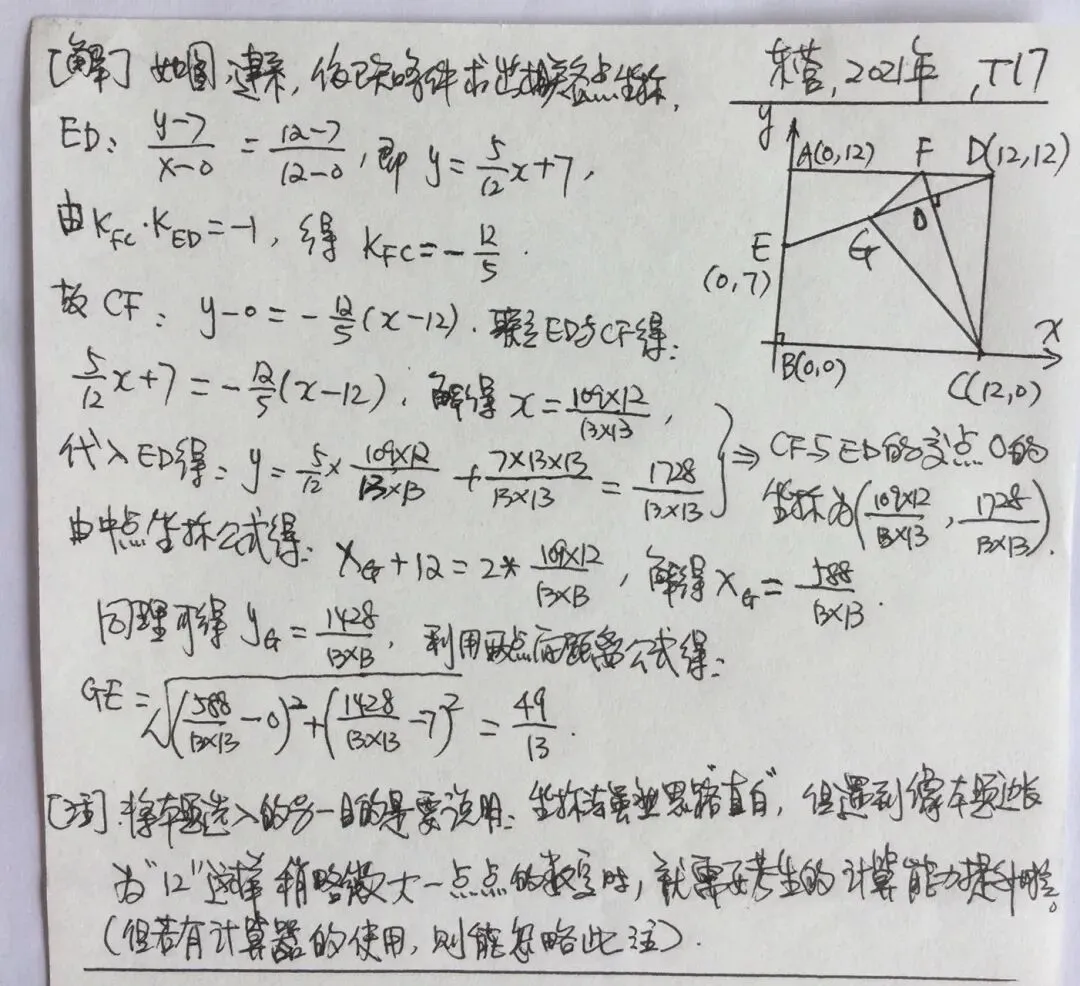 [解] 如图建系，依已知条件求出相关各点坐标，
东营，2021年，T17
ED：(y-7)/(x-0) = (12-7)/(12-0)，即 y = 5/12 x + 7，
由 K_FC·K_ED = -1，得 K_FC = -12/5.
故 CF：y-0 = -12/5 (x-12). 联立ED与CF得：
5/12 x + 7 = -12/5 (x-12)，解得 x = (109×12)/(13×13)，
代入ED得：y = 5/12 × (109×12)/(13×13) + (7×13×13)/(13×13) = 1728/(13×13)
} ⇒ CF与ED的交点O的
坐标为 ((109×12)/(13×13), 1728/(13×13)).
由中点坐标公式得：x_G + 12 = 2* (109×12)/(13×13)，解得 x_G = 588/(13×13).
同理可得 y_G = 1428/(13×13)，利用两点间距离公式得：
GE = √((588/(13×13) - 0)² + (1428/(13×13) - 7)²) = 49/13.
[注]. 将本题选入的另一目的是要说明：坐标法虽然思路"直白"，但遇到像本题边长
为"12"这样稍略微大一点点的数字时，就需要考生的计算能力提升
(但若有计算器的使用，则能忽略此注).
y
A(0,12) F D(12,12)
O
E G
(0,7)
x
B(0,0)
C(12,0)